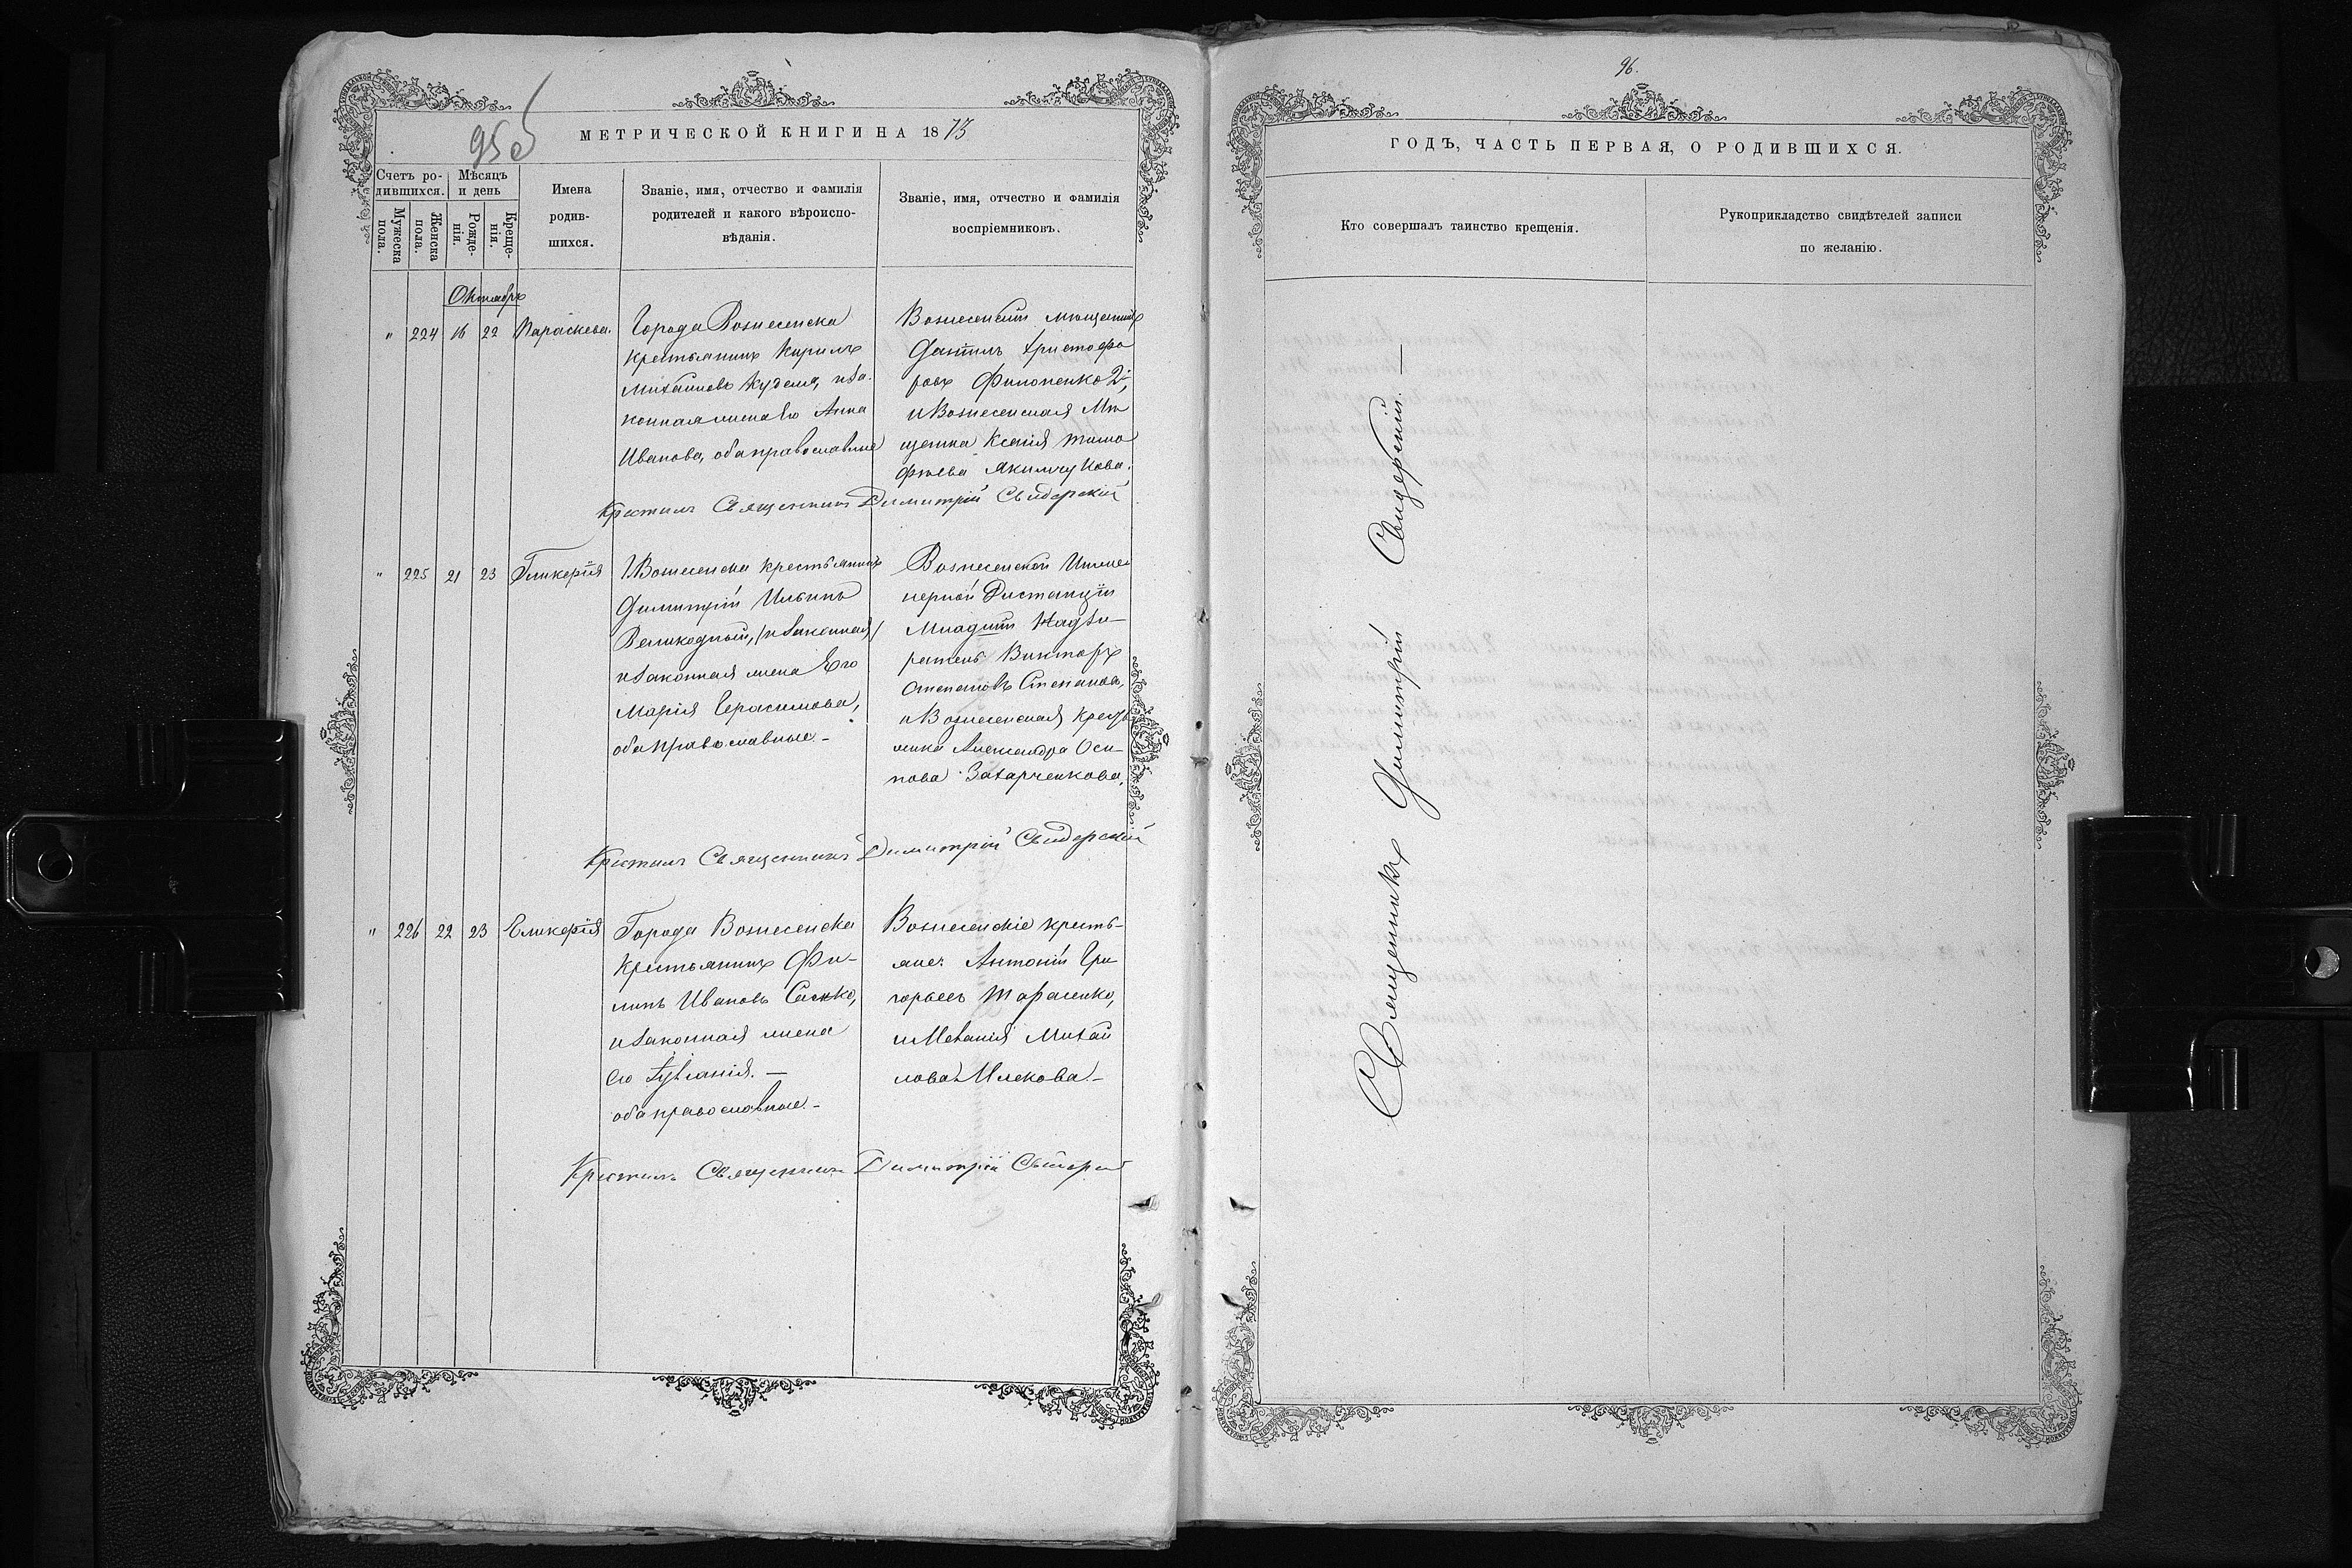 95 об
МЕТРИЧЕСКОЙ КНИГИ НА 1873
Счетъ ро-
дившихся.
Мѣсяцъ
и день
Мужеска
пола.
Женска
пола.
Рожде-
нія.
Креще-
нія.
Имена
родив-
шихся.
Званіе, имя, отчество и фамилія
родителей и какого вѣроиспо-
вѣданія.
Званіе, имя, отчество и фамилія
воспріемниковъ.
Октябрь
" 224 16 22 Параскева.
Города Вознесенска
крестьянинъ Кирилъ
Михайловъ и за-
конная жена его Анна
Иванова, оба православные
Вознесенскій мѣщанинъ
Даніилъ Христофо
ровъ Филоненко
и Вознесенская Мѣ
щанка Ксенія Тимо
фѣева Якимчукова.
Крестилъ Священникъ Димитрій Свидерскій
" 225 21 23 Гликерія
Г. Вознесенска крестьянинъ
Димитрій Ильинъ
Великодный, (и законная)
и законная жена Его
Марія Герасимова,
оба православные. -
Вознесенской Инже
нерной Дистанціи
Младшій Надзи-
ратель Викторъ
Степановъ Степановъ,
и Вознесенская крест
янка Александра Оси-
пова Захарченкова,
Крестилъ Священникъ Димитрій Свидерскій
" 226 22 23 Гликерія
Города Вознесенска
Крестьянинъ Фи-
липъ Ивановъ
и законная жена
его
оба православные. -
Вознесенскіе кресть-
яне: Антоній Гри
горьевъ Тарасенко,
и Меланія Михай
лова
Крестилъ Священникъ Димитрій Свидерскій
96.
ГОДЪ, ЧАСТЬ ПЕРВАЯ, О РОДИВШИХСЯ.
Кто совершалъ таинство крещенія.
Рукоприкладство свидѣтелей записи
по желанію.
Священникъ Димитрій Свидерскій. —